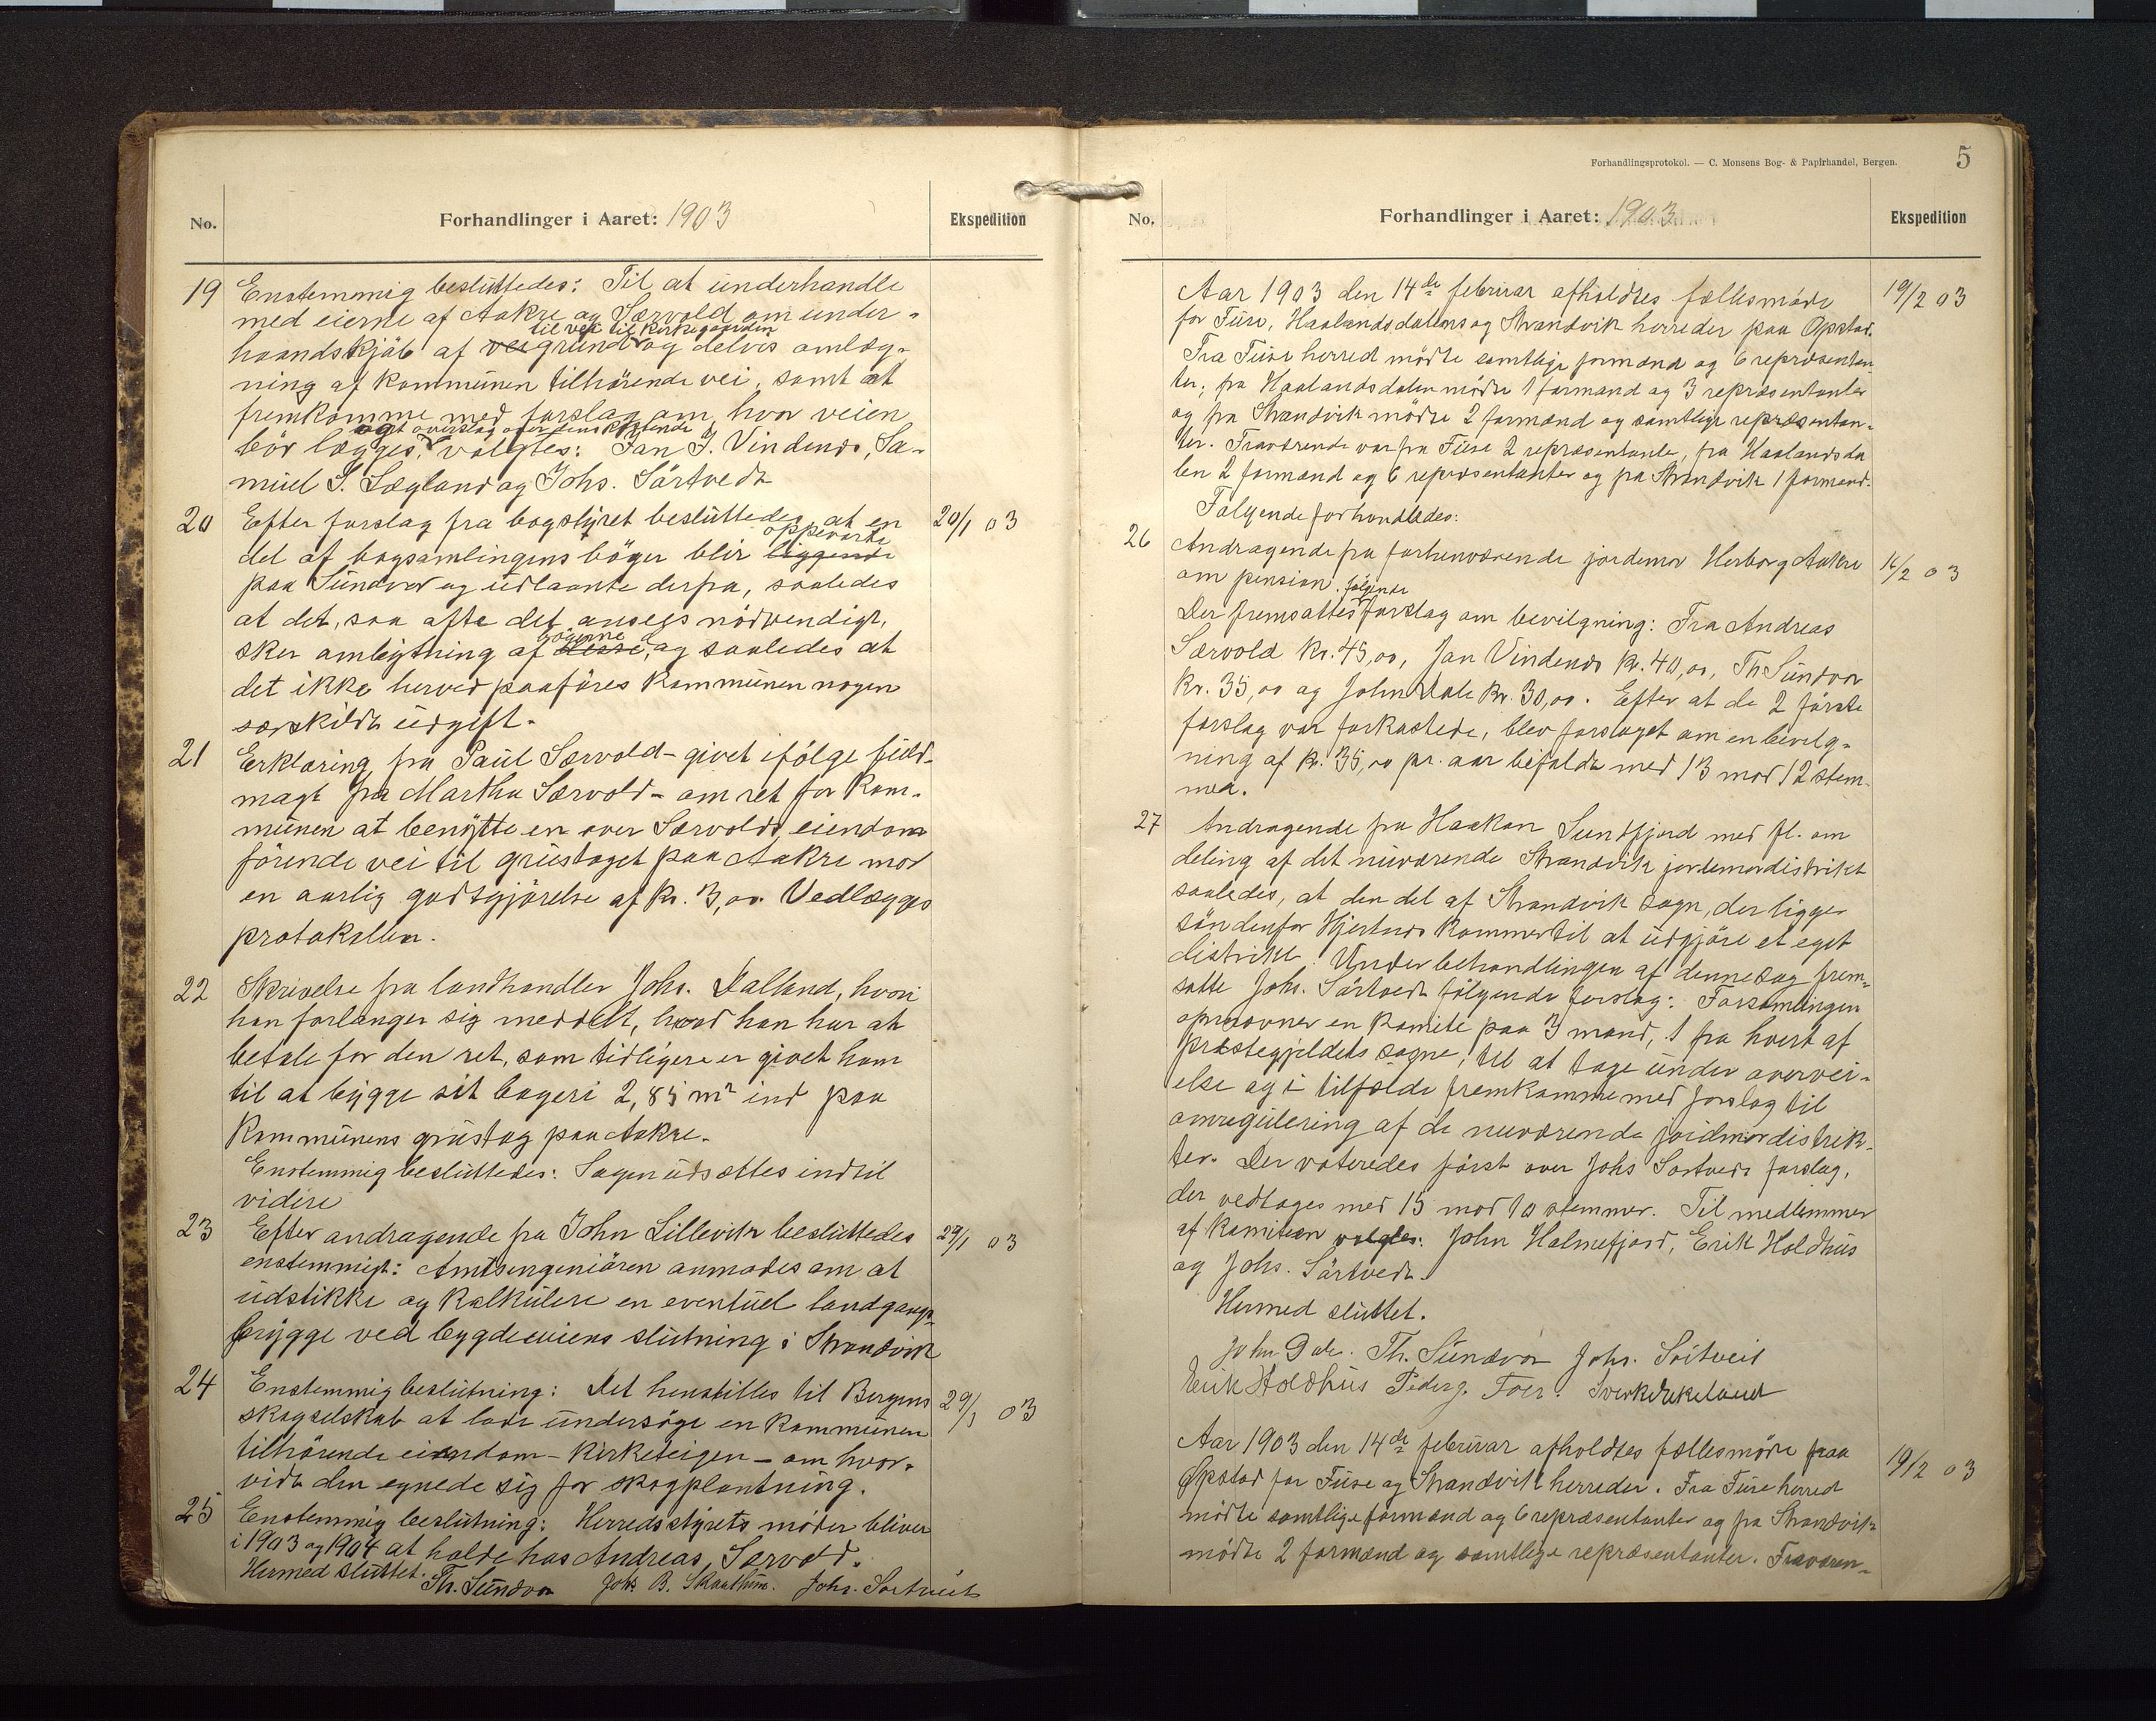 No. Forhandlinger i Aaret: 1903 Ekspedition
19 Enstemmig besluttedes: Til at underhandle
med eierne af Aakre og Særvold om under-
til vei til kirkegaarden
haandskjöb af veigrund og delvis omlæg-
ning af kommunen tilhörende vei, samt at
fremkomme med forslag om, hvor veien
samt overslag over dens kostende
bör lægges, valgtes: Jan J. Vindenes, Sa-
muel S. Lægland og Johs. Sörtvedt
20 Efter forslag fra bogstyret besluttedes, at en 20/1 03
oppevarte
del af bogsamlingens böger blir liggende
paa Sundvor og udlaante derfra, saaledes
at det, saa ofte det ansees nödvendigt,
bögerne
sker ombytning af disse, og saaledes at
det ikke herved paaföres kommunen nogen
særskildt udgift.
21 Erklæring fra Paul Særvold - givet ifölge fuld-
magt fra Martha Særvold - om ret for kom-
munen at benytte en over Særvolds eiendom
förende vei til grustaget paa Aakre mod
en aarlig godtgjörelse af kr. 3,00. Vedlægges
protokollen.
22 Skrivelse fra landhandler Johs. Dalland, hvori
han forlanger sig meddelt, hvad han har at
betale for den ret, som tidligere er givet ham
til at bygge sit bageri 2,85 m² ind paa
Kommunens grustag paa Aakre.
Enstemmig besluttedes: Sagen udsættes indtil
videre
23 Efter andragende fra John Lillevik besluttedes 29/1 03
enstemmigt: Amtsingeniören anmodes om at
udstikke og kalkulere en eventuel landgangs-
brygge ved bygdeveiens slutning i Strandvik
24 Enstemmig beslutning: Det henstilles til Bergens 29/1 03
skogselskab at lade undersöge en kommunen
tilhörende eiendom - Kirketeigen - om hvor-
vidt den egnede sig for skogplantning.
25 Enstemmig beslutning: Herredsstyrets möder bliver
i 1903 og 1904 at holde hos Andreas Særvold.
Hermed sluttet.
Th. Sundvor Johs B. Skaathun. Johs. Sörtveit
Forhandlingsprotokol. — C. Monsens Bog- & Papirhandel, Bergen. 5
No. Forhandlinger i Aaret: 1903 Ekspedition
Aar 1903 den 14de februar afholdtes fællesmöde 19/2 03
for Fuse, Haalandsdalens og Strandvik herreder paa Opstad.
Fra Fuse herred mödte samtlige formænd og 6 repræsentan-
ter, fra Haalandsdalen mödte 1 formand og 3 repræsentanter
og fra Strandvik mödte 2 formænd og samtlige repræsentan-
ter. Fraværende var fra Fuse 2 repræsentanter, fra Haalandsda
len 2 formænd og 6 repræsentanter og fra Strandvik 1 formand.
Fölgende forhandledes:
26 Andragende fra forhenværende jordemor Herborg Aakre 16/2 03
om pension.
fölgende
Der fremsattes forslag om bevilgning: Fra Andreas
Særvold kr. 45,00, Jan Vindenes kr. 40,00, Th Sundvor
kr. 35,00 og John Dale kr. 30,00. Efter at de 2 förste
forslag var forkastede, blev forslaget om en bevilg-
ning af kr. 35,00 pr. aar bifaldt med 13 mod 12 stem-
mer.
27 Andragende fra Haakon Sundfjord med fl. om
deling af det nuværende Strandvik jordemordistrikt
saaledes, at den del af Strandvik sogn, der ligger
söndenfor Hjertnes kommer til at udgjöre et eget
distrikt. Under behandlingen af denne sag frem-
satte Johs. Sörtvedt fölgende forslag: Forsamlingen
opnævner en komite paa 3 mand, 1 fra hvert af
præstegjeldets sogne, til at tage under overvei-
else og i tilfælde fremkomme med forslag til
omregulering af de nuværende jordmordistrik-
ter. Der voteredes först over Johs Sörtveds forslag,
der vedtages med 15 mod 10 stemmer. Til medlemmer
af komiteen valgtes: John Holmefjord, Erik Holdhus
og Johs. Sörtvedt.
Hermed sluttet.
John Dale. Th. Sundvor Johs. Sörtveit
Erik Holdhus Peder J. Toer. Sverke Ekeland
Aar 1903 den 14de februar afholdtes fællesmöde paa 19/2 03
Opstad for Fuse og Strandvik herreder. Fra Fuse herred
mödte samtlige formænd og 6 repræsentanter og fra Strandvik
mödte 2 formænd og samtlige repræsentanter. Fraværen-